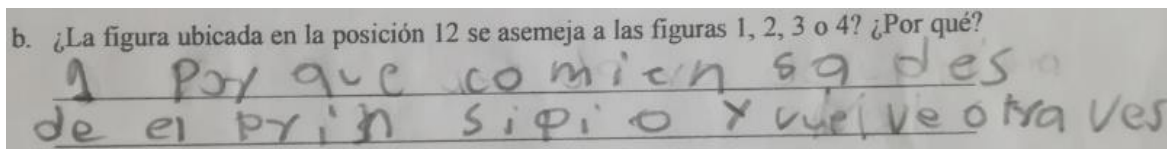 b. ¿La figura ubicada en la posición 12 se asemeja a las figuras 1, 2, 3 o 4? ¿Por qué?
1 Por que comiensa des
de el prinsipio y vuelve otra ves